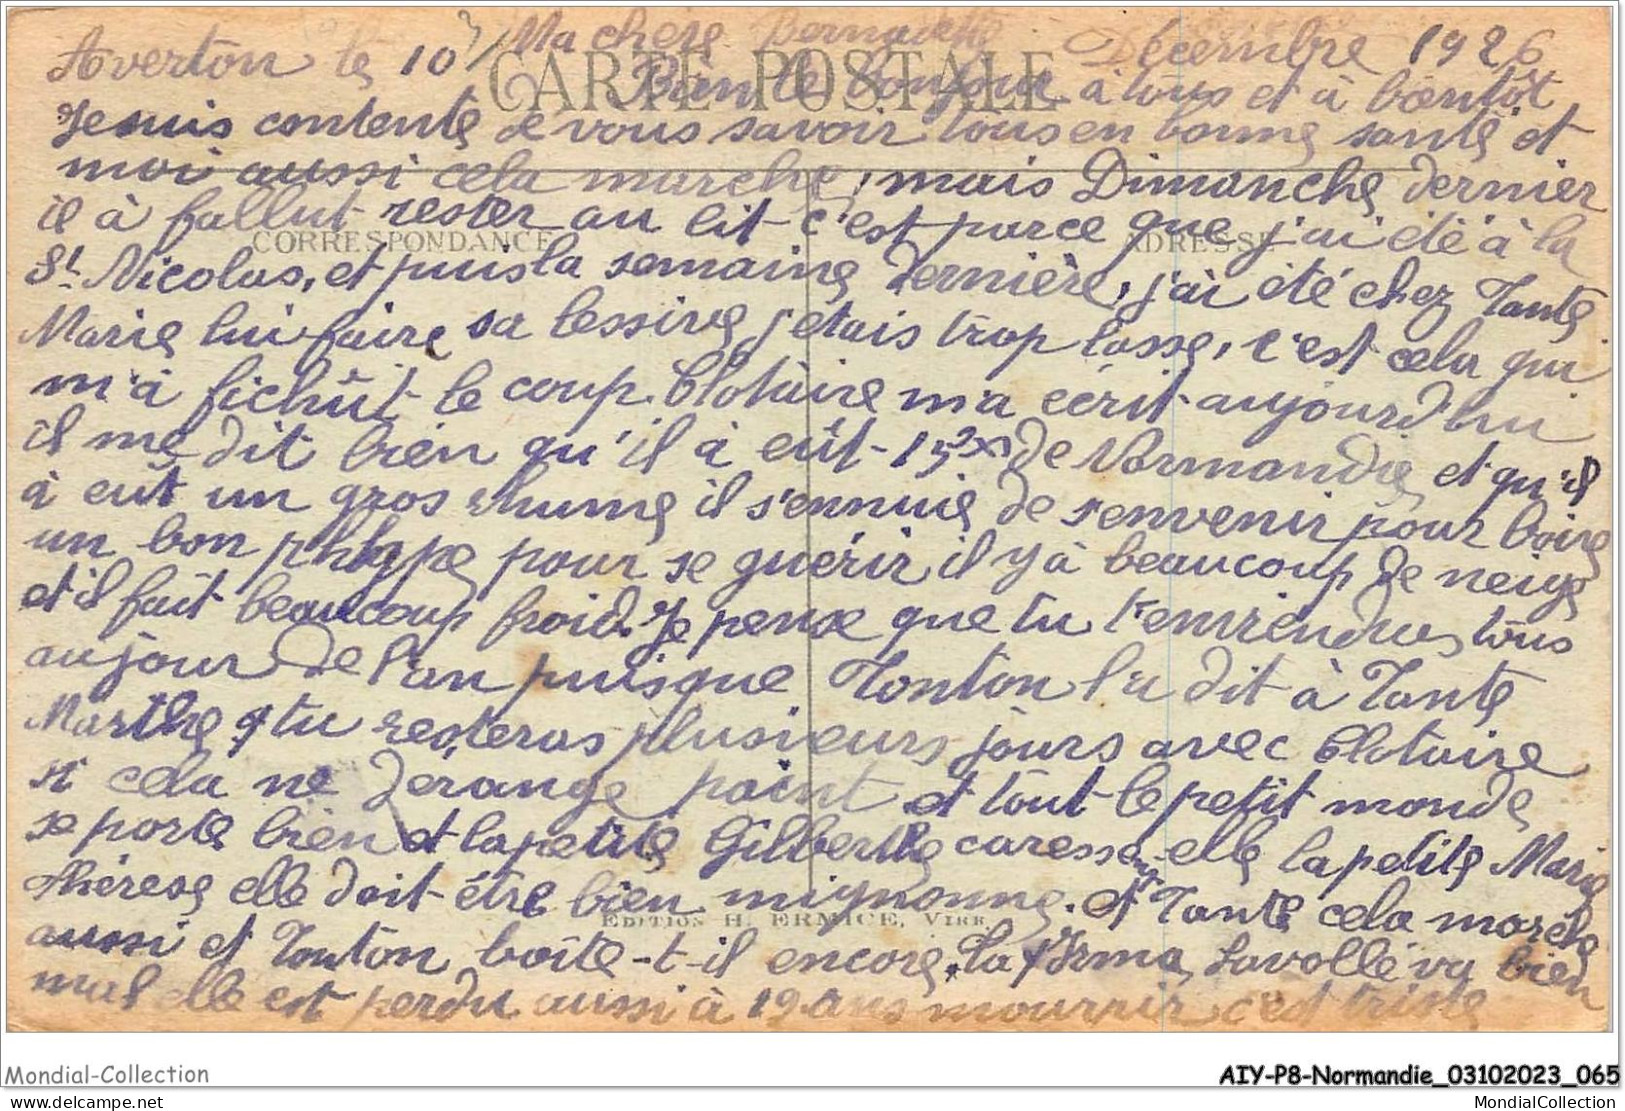 Averton le 10 Décembre 1926
Ma chère Bernadette
CARTE POSTALE
Bien le bonjour à tous et à bientôt
Je suis contente de vous savoir tous en bonne santé et
moi aussi cela marche, mais Dimanche dernier
il à fallut rester au lit c'est parce que j'ai été à la
CORRESPONDANCE
ADRESSE
St. Nicolas, et puis la semaine dernière, j'ai été chez Tante
Marie lui faire sa lessive j'etais trop lasse, c'est cela qui
m'a fichût le coup. Clotaire m'a écrit aujourd'hui
il me dit bien qu'il à eût 15 de Normandie et qu'il
à eût un gros rhume il s'ennuie de s'envenir pour boire
un bon pour se guérir il y à beaucoup de neige
et il fait beaucoup froid. Je pense que tu t'enviendras tous
au jour de l'an puisque Tonton l'a dit à Tante
Marthe q tu resteras plusieurs jours avec Clotaire
si cela ne dérange point et tout le petit monde
se porte bien et la petite Gilberthe caresse-elle la petite Marie
thérèse elle doit être bien mignonne. et Tante cela marche
EDITION H. ERMICE, VIRE
aussi et Tonton boîte-t-il encore. La Irma Lavollé va bien
mal elle est perdu aussi à 19 ans mourrir c'est triste
Mondial-Collection
AIY-P8-Normandie_03102023_065
delcampe.net
MondialCollection